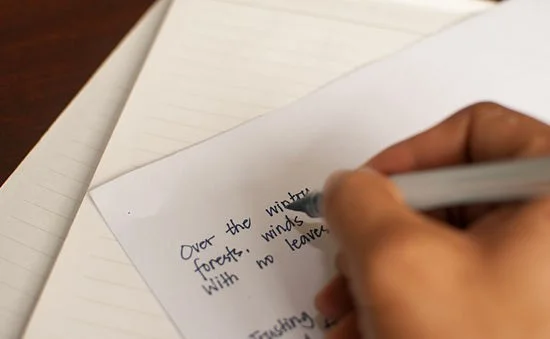 Over the wintry
forests. winds
With no leaves
Trusting